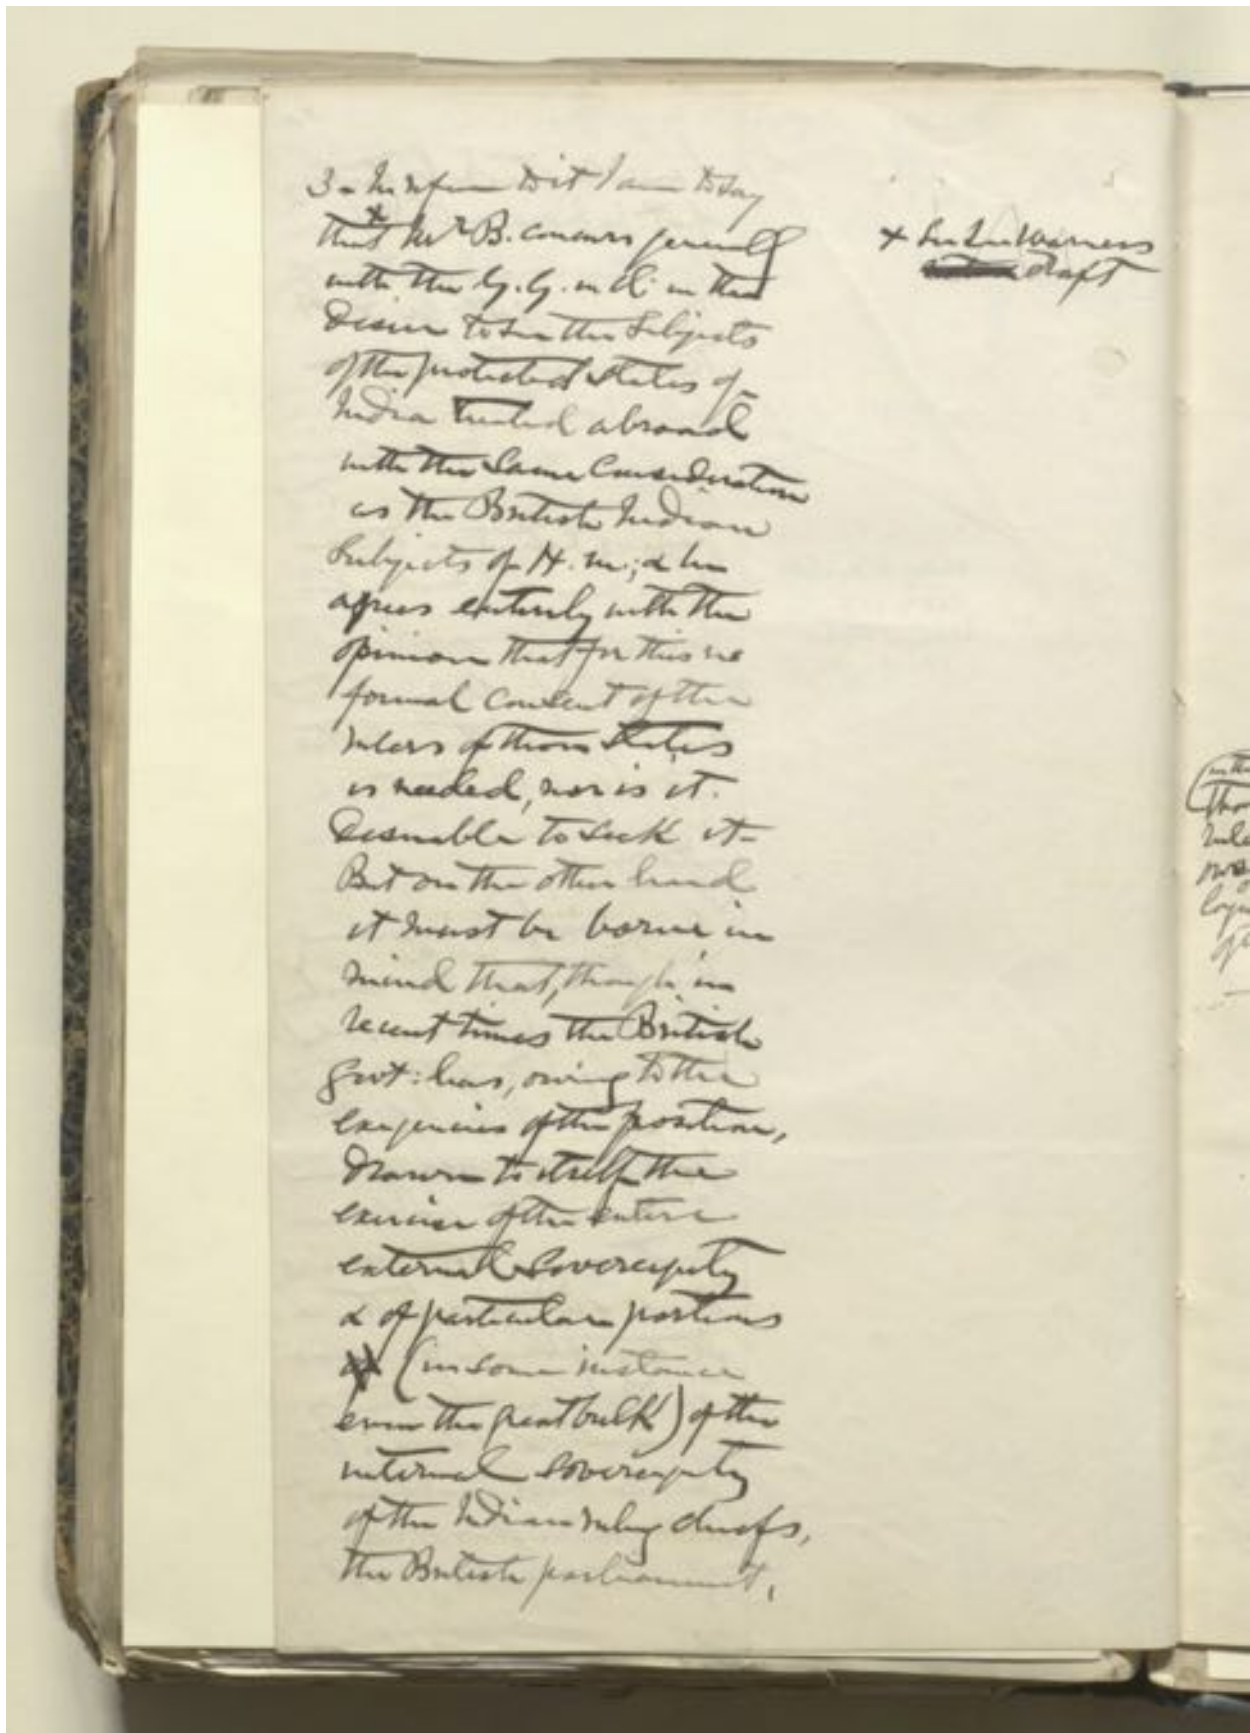 3 - In reply to it I am to say
that + Mr B. concurs generally
with the G. G. in C. in the
desire to see the subjects
of the protected States of
India treated abroad
with the same consideration
as the British Indian
subjects of H. M.; & he
agrees entirely with the
opinion that for this no
formal consent of the
rulers of those States
is needed, nor is it
desirable to seek it -
But on the other hand
it must be borne in
mind that, though in
recent times the British
Govt: has, owing to the
exigencies of the position,
drawn to itself the
exercise of the entire
external sovereignty
& of particular portions
of (in some instance
even the great bulk) of the
internal sovereignty
of the Indian ruling chiefs,
the British parliament,
+ draft